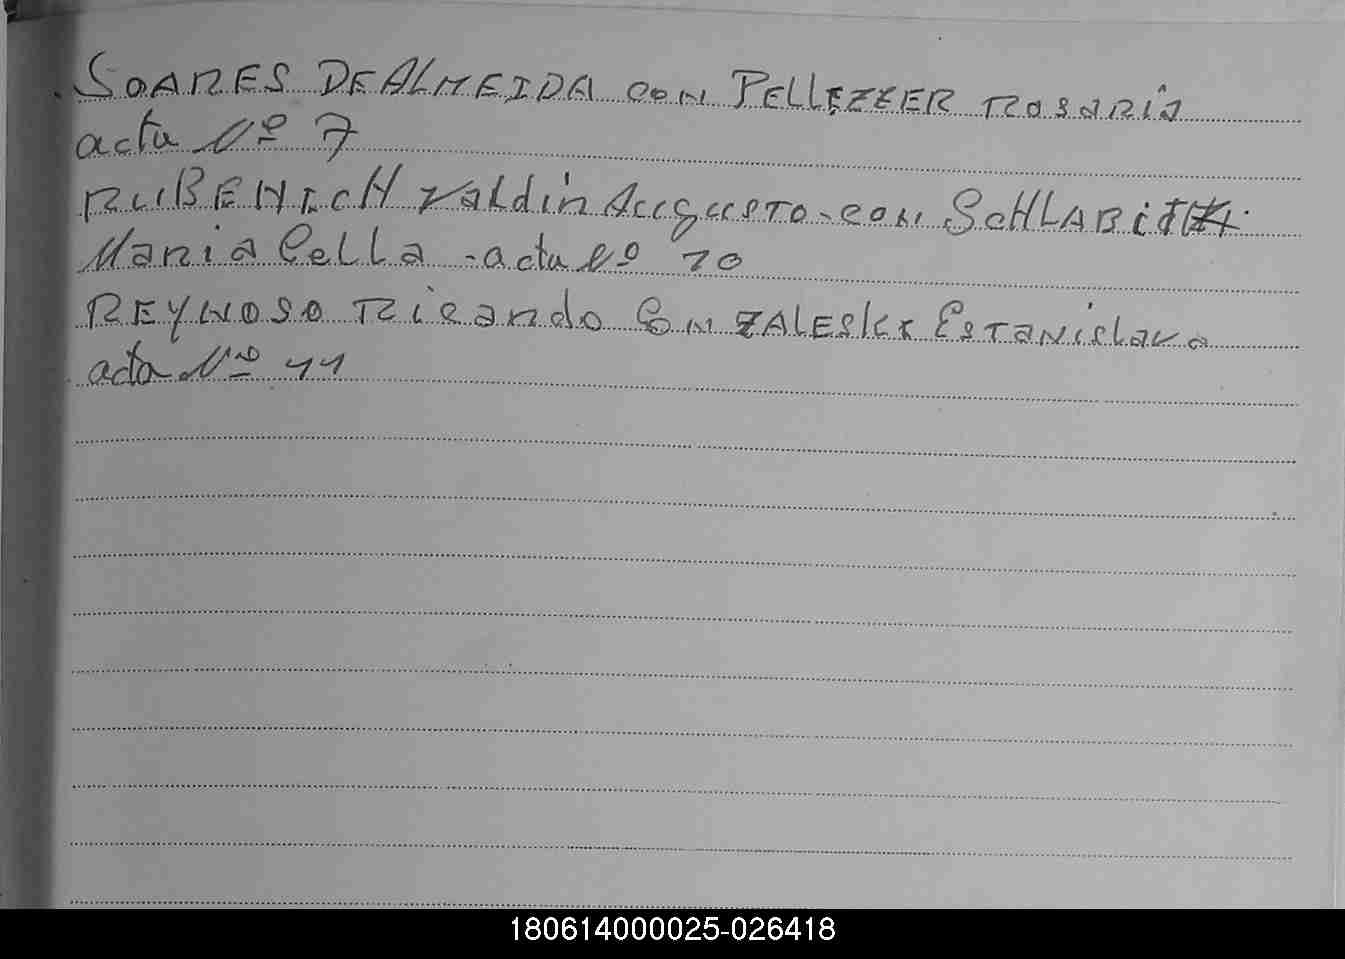 SOARES DE ALMEIDA con PELLEZZER ROSARIA
acta Nº 7
RUBENICH Valdin Augusto - con SCHLABITZ
Maria Cella - acta Nº 10
REYNOSO Ricardo Con ZALESKI Estanislava
acta Nº 11
180614000025-026418